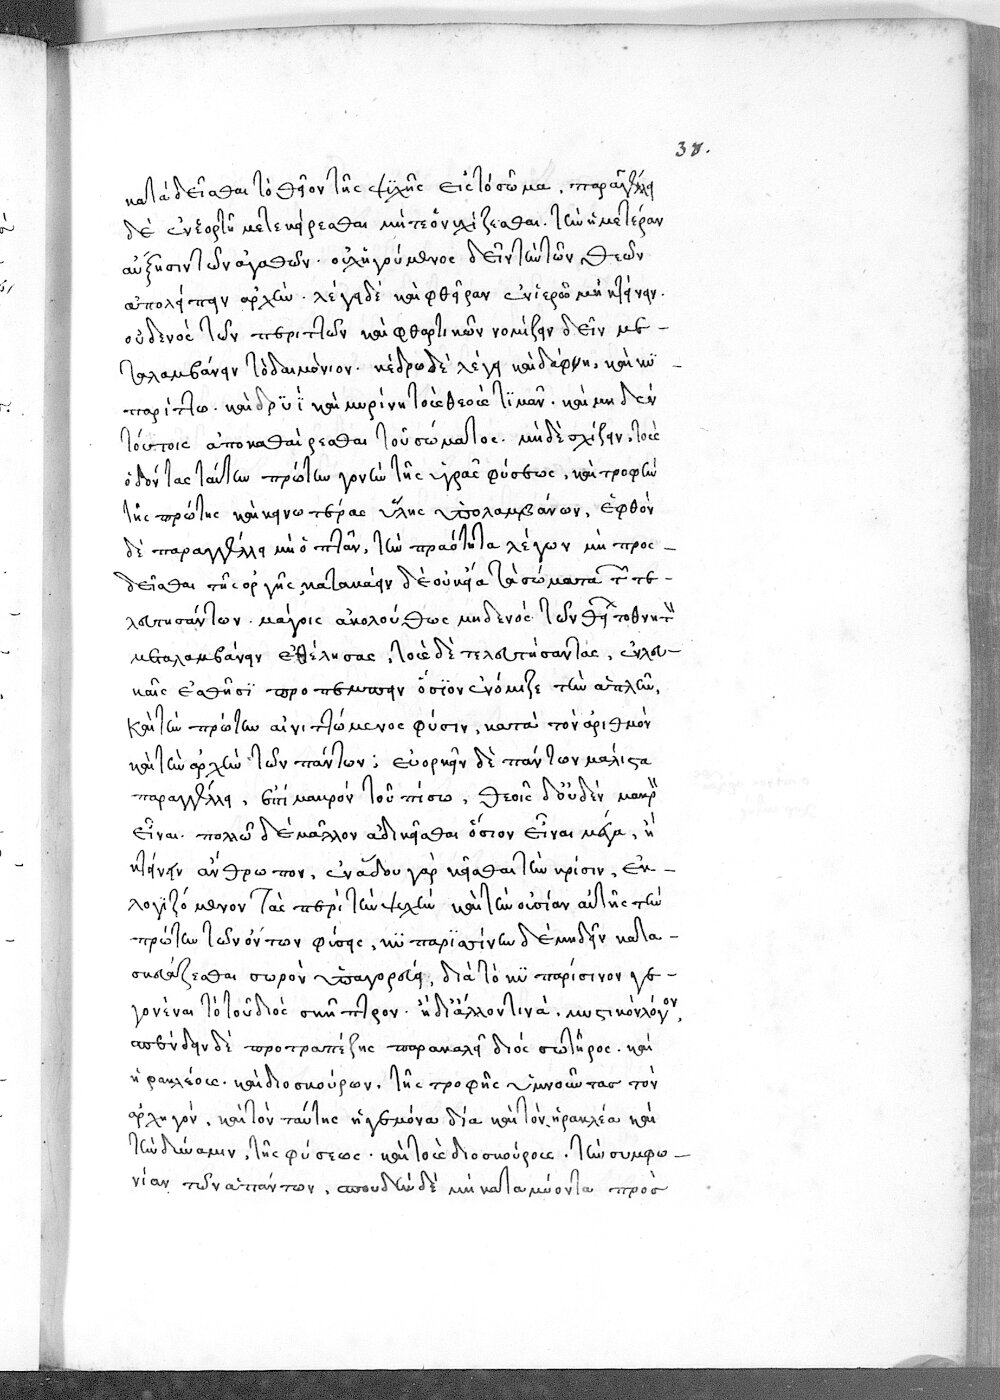 38.
καταδεῖσθαι τὸ θεῖον τῆς ψυχῆς εἰς τὸ σῶμα. παραγγέλλει
δὲ ἐν ἑορτῇ μήτε κείρεσθαι μήτε ὀνυχίζεσθαι. τὴν ἡμετέραν
αὔξησιν τῶν ἀγαθῶν. οὐχ ἡγούμενος δεῖν τὴν τῶν θεῶν
ἀπολείπειν ἀρχήν. λέγει δὲ καὶ φθεῖραν ἐν ἱερῷ μὴ κτείνειν.
οὐδενὸς τῶν περιττῶν καὶ φθαρτικῶν νομίζειν δεῖν με-
ταλαμβάνειν τὸ δαιμόνιον. κέδρω δὲ λέγει καὶ δάφνη. καὶ κυ
παρίττω. καὶ δρυῒ καὶ μυρίνη τοὺς θεοὺς τιμᾶν. καὶ μηδὲν
τούτοις ἀποκαθαίρεσθαι τοῦ σώματος. μηδὲ σχίζειν. τοὺς
ὀδόντας ταύτην πρώτην γονὴν τῆς ὑγρᾶς φύσεως, καὶ τροφὴν
τῆς πρώτης καὶ κοινωτέρας ὕλης ὑπολαμβάνων, ἑφθὸν
δὲ παραγγέλλει μὴ ὀπτᾶν, τὴν πραότητα λέγων μὴ προσ-
δεῖσθαι τῆς ὀργῆς, κατακαίειν δὲ οὐκ εἴα τὰ σώματα τῶν τε-
λευτησάντων. μάγοις ἀκολούθως μηδενὸς τῶν θείων τὸ θνητὸν
μεταλαμβάνειν ἐθέλησας, τοὺς δὲ τελευτήσαντας, ἐν λευ-
καῖς ἐσθῆσι προπέμπειν ὅσιον ἐνόμιζε τὴν ἁπλῆν,
καὶ τὴν πρώτην αἰνιττόμενος φύσιν, κατὰ τὸν ἀριθμὸν
καὶ τὴν ἀρχὴν τῶν πάντων; εὐορκεῖν δὲ πάντων μάλιστα
παραγγέλλει, ἐπὶ μακρὸν τοὐπίσω, θεοῖς δ' οὐδὲν μακρὸν
εἶναι. πολλῶ δὲ μᾶλλον ἀδικεῖσθαι ὅσιον εἶναι μέγα, ἢ
κτείνειν ἄνθρωπον, ἐν ἅδου γὰρ κεῖσθαι τὴν κρίσιν, ἐκ-
λογιζόμενον τὰς περὶ τὴν ψυχὴν καὶ τὴν οὐσίαν αὐτῆς τὴν
πρώτην τῶν ὄντων φύσεις, κυπαρισίνην δὲ μὴ δεῖν κατα-
σκευάζεσθαι σωρὸν ὑπαγορεύει, διὰ τὸ κυπαρίσινον γε-
γονέναι τὸ τοῦ διὸς σκῆπτρον. ἢ δι' ἄλλον τινὰ. μυστικὸν λόγον,
σπένδειν δὲ προτραπέζης παρακαλεῖ διὸς σωτῆρος. καὶ
ἡρακλέους. καὶ διοσκούρων. τῆς τροφῆς ὑμνοῦντας τὸν
ἀρχηγὸν. καὶ τὸν ταύτης ἡγεμόνα δία καὶ τὸν ἡρακλέα καὶ
τὴν δύναμιν, τῆς φύσεως. καὶ τοὺς διοσκούρους. τὴν συμφω-
νίαν τῶν ἁπάντων, σπονδὴν δὲ μὴ καταμύοντα πρὸς